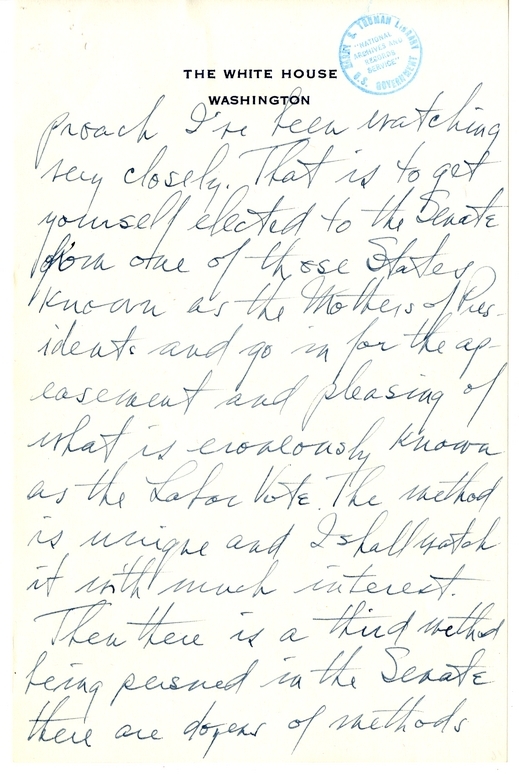 HARRY S. TRUMAN LIBRARY
"NATIONAL
ARCHIVES AND
RECORDS
SERVICE"
U.S. GOVERNMENT
THE WHITE HOUSE
WASHINGTON
proach I've been watching
very closely. That is to get
yourself elected to the Senate
from one of those States
known as the Mothers of Pres-
idents and go in for the ap-
easement and pleasing of
what is eroneously known
as the Labor Vote. The method
is unique and I shall watch
it with much interest.
Then there is a third method
being persued in the Senate
there are dozens of methods